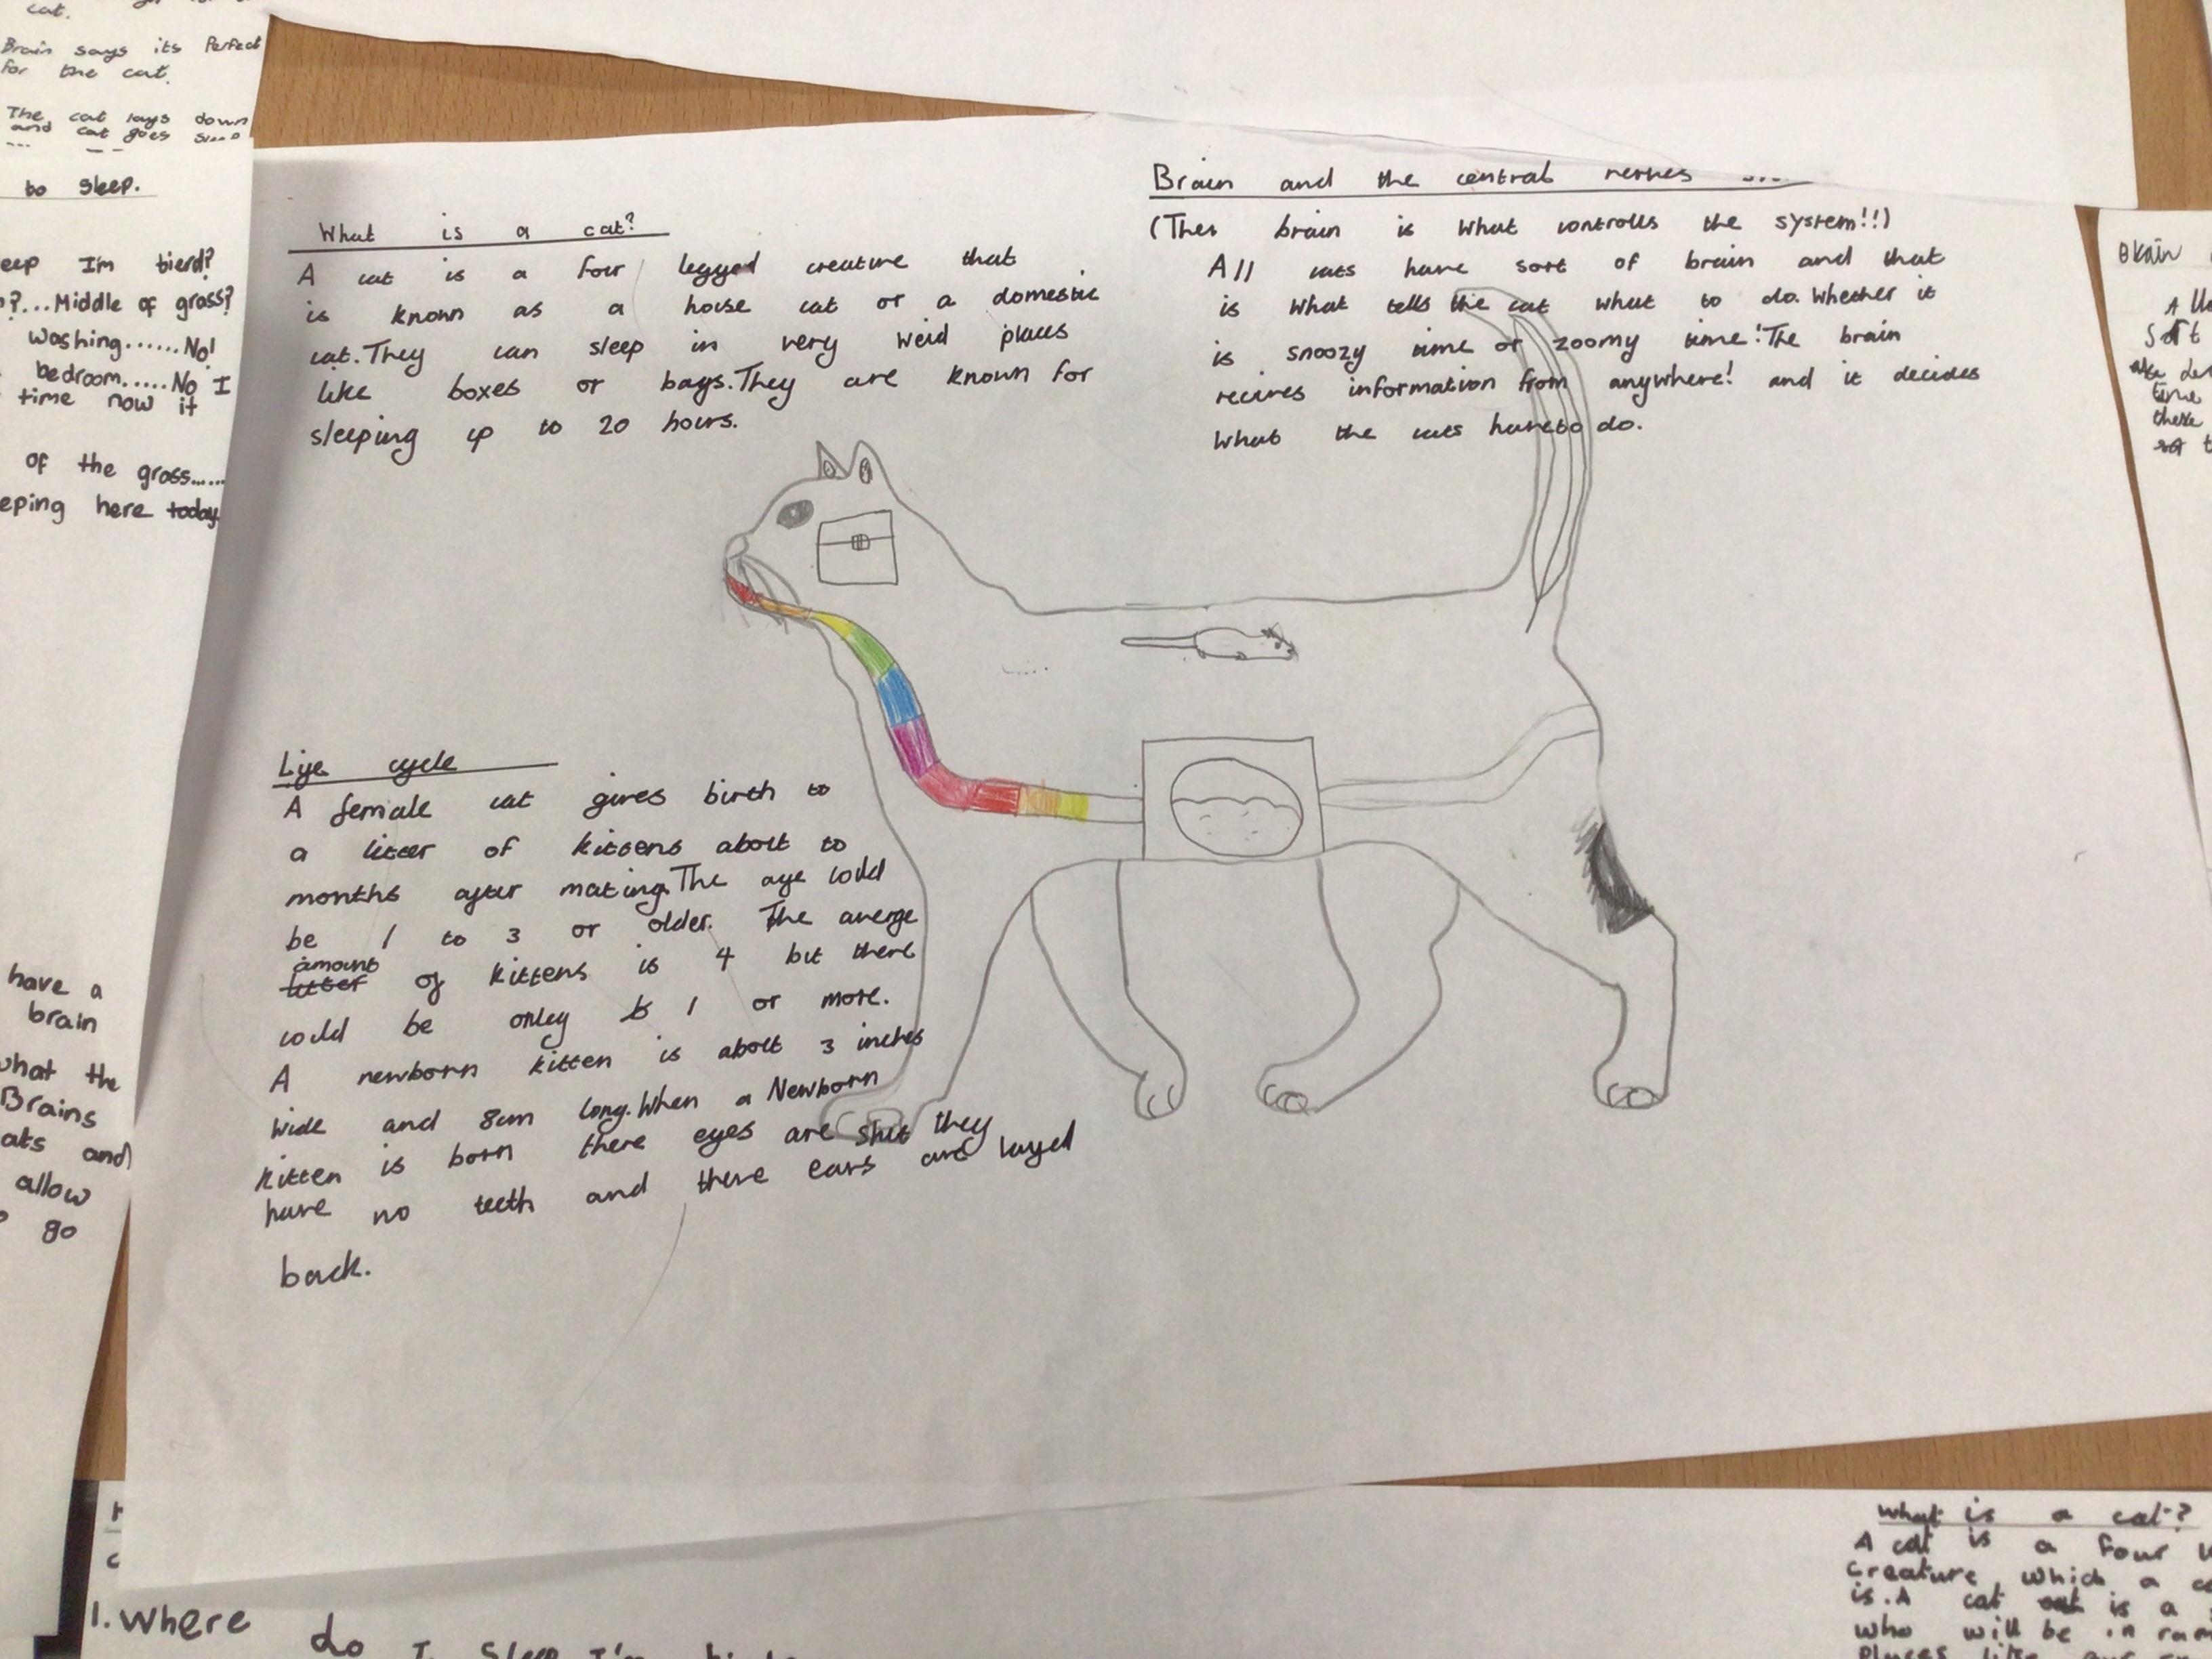 cat.
Brain says its Perfect
for the cat.
The cat lays down
and cat goes
to sleep.
eep I'm tierd?
?...Middle of grass?
washing......No!
bedroom.....No I
time now it
of the grass......
eping here today
have a
brain
what the
Brains
ats and
allow
go
What is a cat?
A cat is a four legged creature that
is known as a house cat or a domestic
cat.They can sleep in very weid places
like boxes or bags.They are known for
sleeping up to 20 hours.
Brain and the central nerves
(Ther brain is what controlls the system!!)
All cats have sort of brain and that
is what tells the cat what to do. Whether it
is snoozy time or zoomy time!The brain
recives information from anywhere! and it decides
what the cats have to do.
Life cycle
A female cat gives birth to
a litter of kittens about to
months after mating.The age could
be 1 to 3 or older. The averge
amount
litter of kittens is 4 but there
could be onley 1 or more.
A newborn kitten is about 3 inches
wide and 8cm long.When a Newborn
kitten is born there eyes are shut they
have no teeth and there ears are layed
back.
Brain
A
time
there
1. Where do I sleep I'm
What is a cat?
A cat is a four
creature which a
is. A cat is a
who will be in
places like